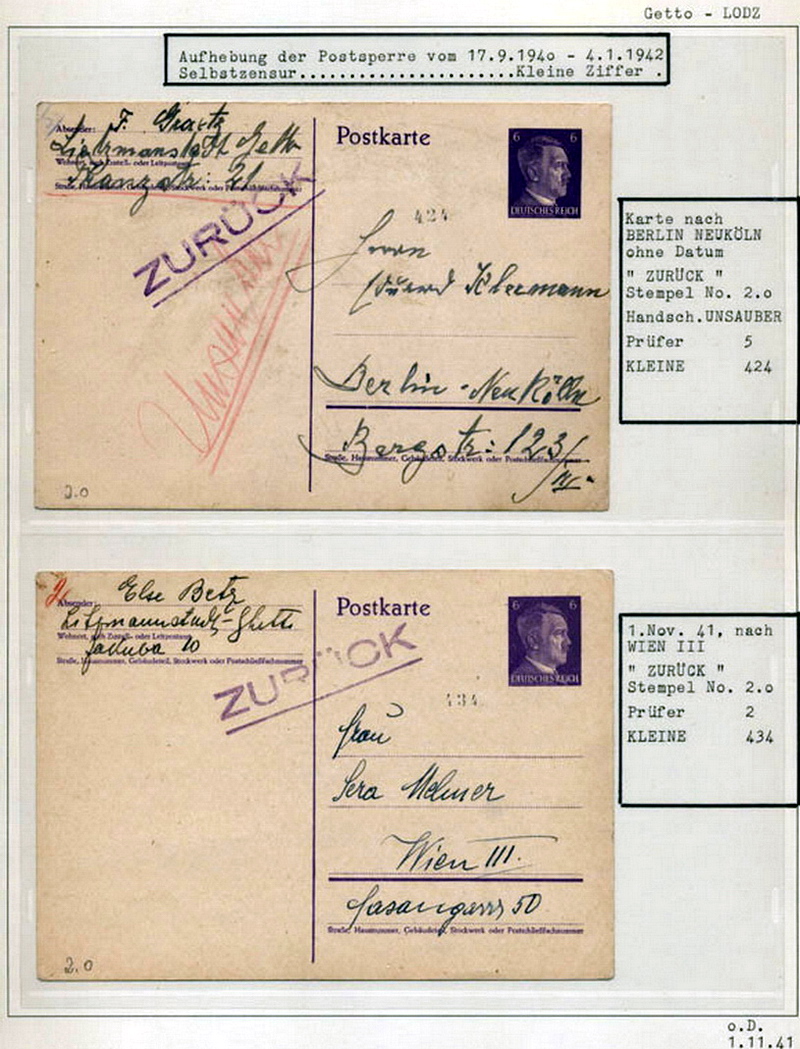 Getto - LODZ
Aufhebung der Postsperre vom 17.9.194o - 4.1.1942
Selbstzensur......................Kleine Ziffer .
Absender: F. Graetz
Litzmannstadt Getto
Wohnort, auch Zustell- oder Leitpostamt
Hanzstr: 21
Straße, Hausnummer, Gebäudeteil, Stockwerk oder Postschließfachnummer
ZURÜCK
Unsauber
2.0
Postkarte
6 6
DEUTSCHES REICH
424
Herrn
Eduard Klermann
Berlin - Neukölln
Bergstr: 123/
IV.
Straße, Hausnummer, Gebäudeteil, Stockwerk oder Postschließfachnummer
Karte nach
BERLIN NEUKÖLN
ohne Datum
" ZURÜCK "
Stempel No. 2.o
Handsch.UNSAUBER
Prüfer 5
KLEINE 424
Absender: Else Betz
Litzmannstadt-Ghetto
Wohnort, auch Zustell- oder Leitpostamt
Jakuba 10
Straße, Hausnummer, Gebäudeteil, Stockwerk oder Postschließfachnummer
ZURÜCK
2.0
Postkarte
6 6
DEUTSCHES REICH
434
Frau
Wien III.
50
Straße, Hausnummer, Gebäudeteil, Stockwerk oder Postschließfachnummer
1.Nov. 41, nach
WIEN III
" ZURÜCK "
Stempel No. 2.o
Prüfer 2
KLEINE 434
o.D.
1.11.41